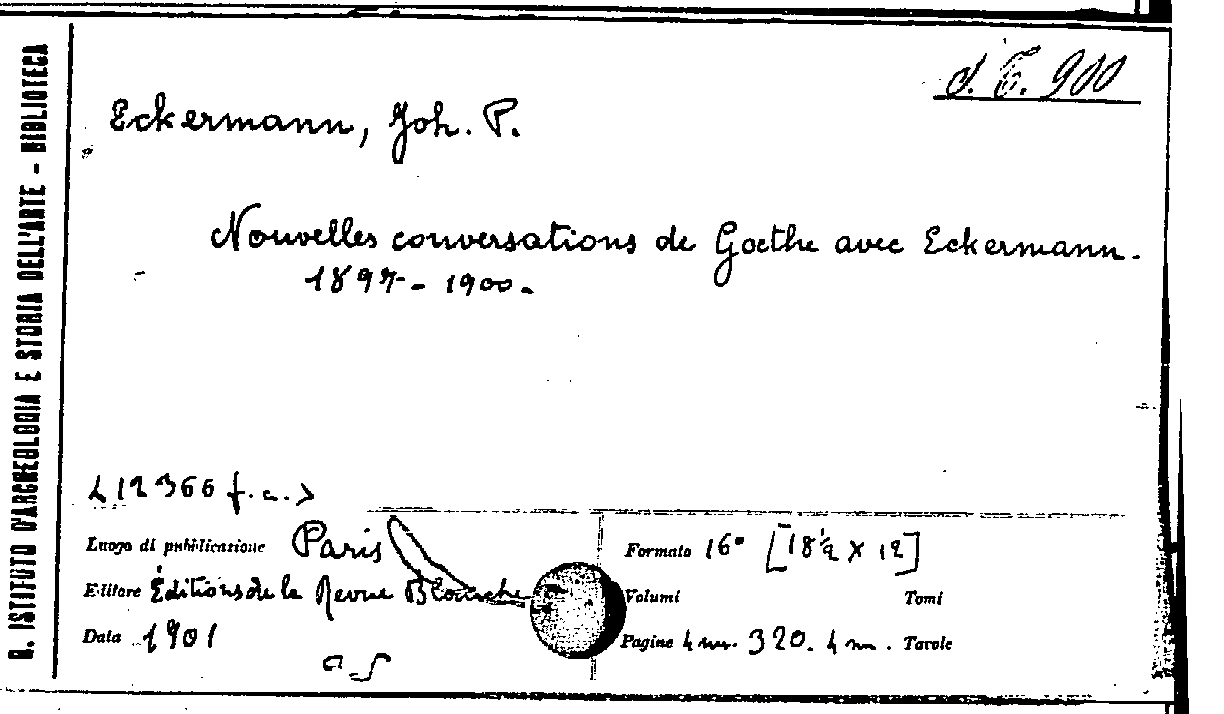 R. ISTITUTO D'ARCHEOLOGIA E STORIA DELL'ARTE - BIBLIOTECA
Eckermann, Joh. P.
Nouvelles conversations de Goethe avec Eckermann.
1897 - 1900.
<12366 f.a.>
Luogo di pubblicazione Paris
Editore Éditions de la Revue Blanche
Data 1901
Formato 16° [18½ X 12]
Volumi Tomi
Pagine 4 nn. 320. 4 nn. Tavole